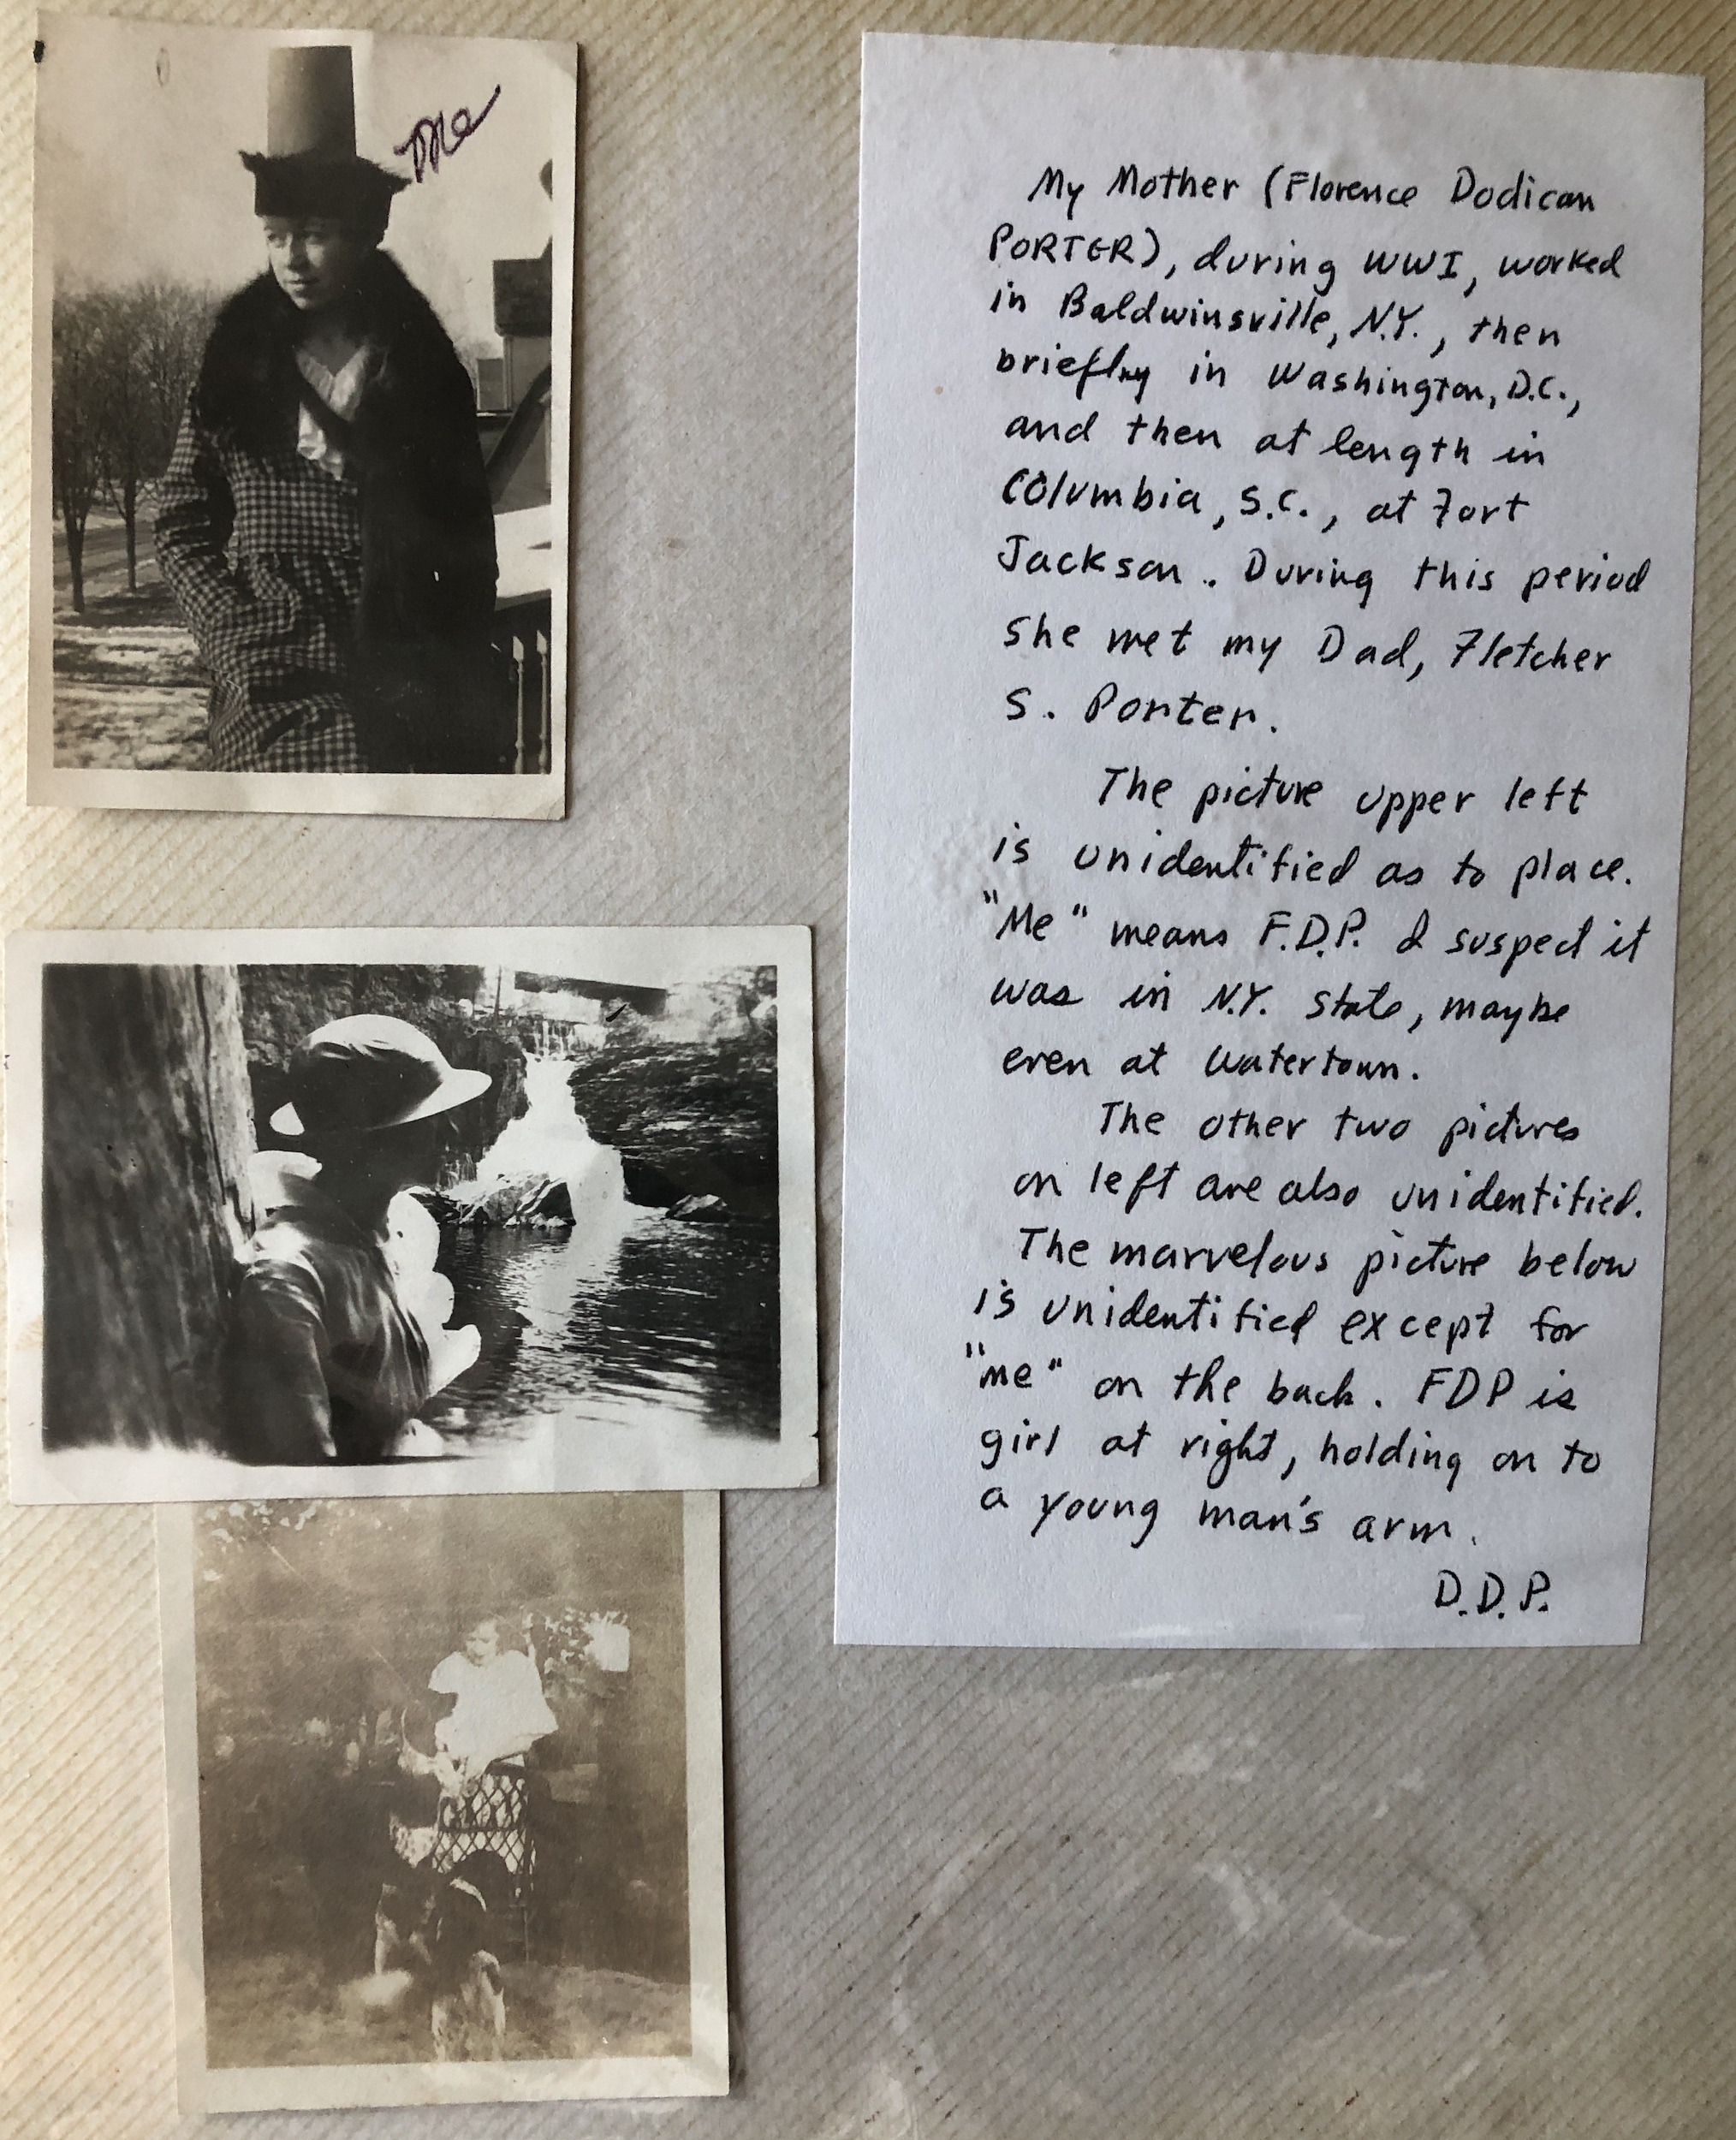 Me
My Mother (Florence Dodican
PORTER), during WWI, worked
in Baldwinsville, N.Y., then
briefly in Washington, D.C.,
and then at length in
Columbia, S.C., at Fort
Jackson. During this period
she met my Dad, Fletcher
S. Porter.
The picture upper left
is unidentified as to place.
"Me" means F.D.P. I suspect it
was in N.Y. State, maybe
even at Watertown.
The other two pictures
on left are also unidentified.
The marvelous picture below
is unidentified except for
"me" on the back. FDP is
girl at right, holding on to
a young man's arm.
D.D.P.